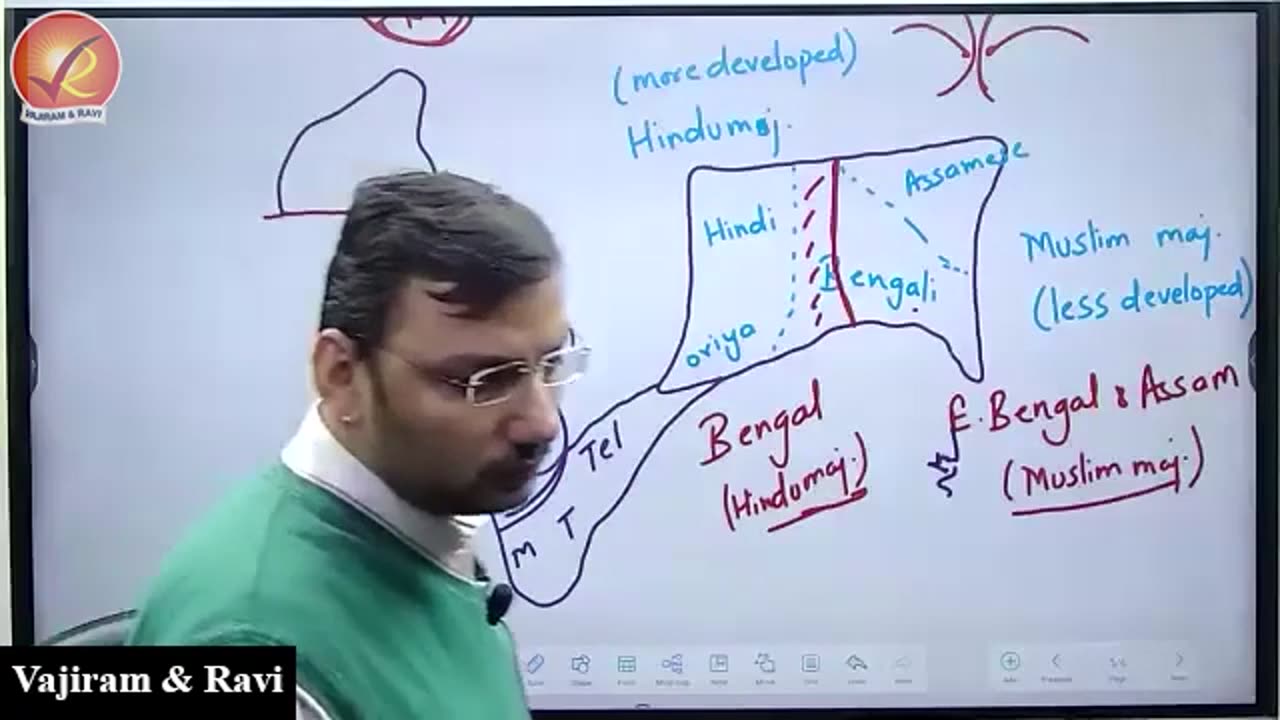 VAJIRAM & RAVI
(more developed)
Hindu maj.
Hindi
Assamese
Bengali
oriya
Muslim maj.
(less developed)
Tel
M T
Bengal
(Hindu maj.)
E. Bengal & Assam
(Muslim maj.)
Vajiram & Ravi